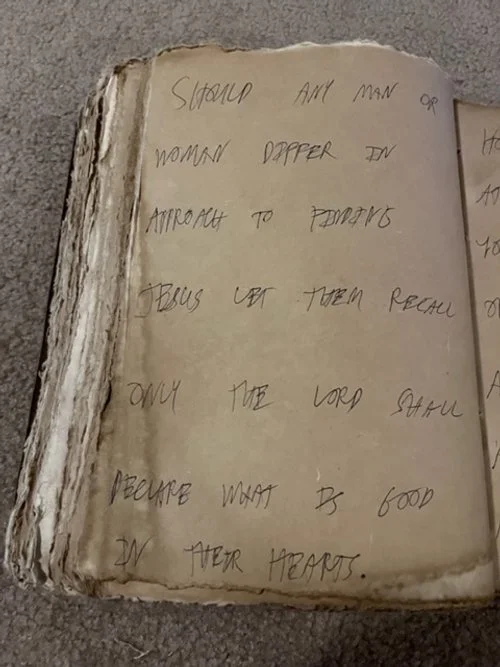 SHOULD ANY MAN OR
WOMAN DIFFER IN
APPROACH TO FINDING
JESUS LET THEM RECALL
ONLY THE LORD SHALL
DECLARE WHAT IS GOOD
IN THEIR HEARTS.